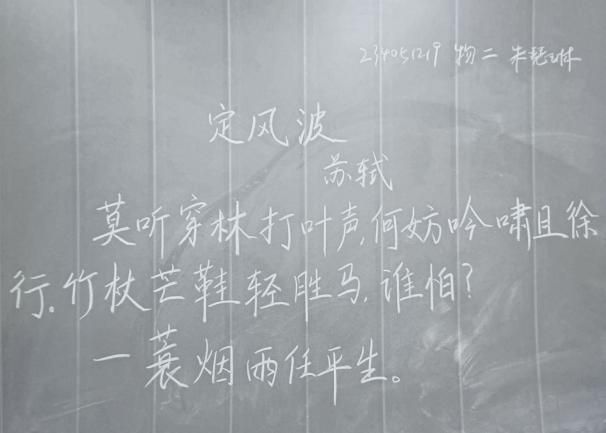 234051219 物二 朱琵琳
定风波
苏轼
莫听穿林打叶声,何妨吟啸且徐
行.竹杖芒鞋轻胜马,谁怕?
一蓑烟雨任平生。